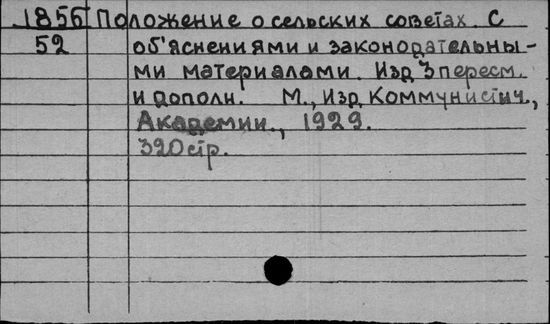 1856 Положение о сельских советах. С
52 об'яснениями и законодательны-
ми материалами. Изд 3 пересм.
и дополн. М., Изд. Коммунистич.,
Академии., 1929.
320 стр.